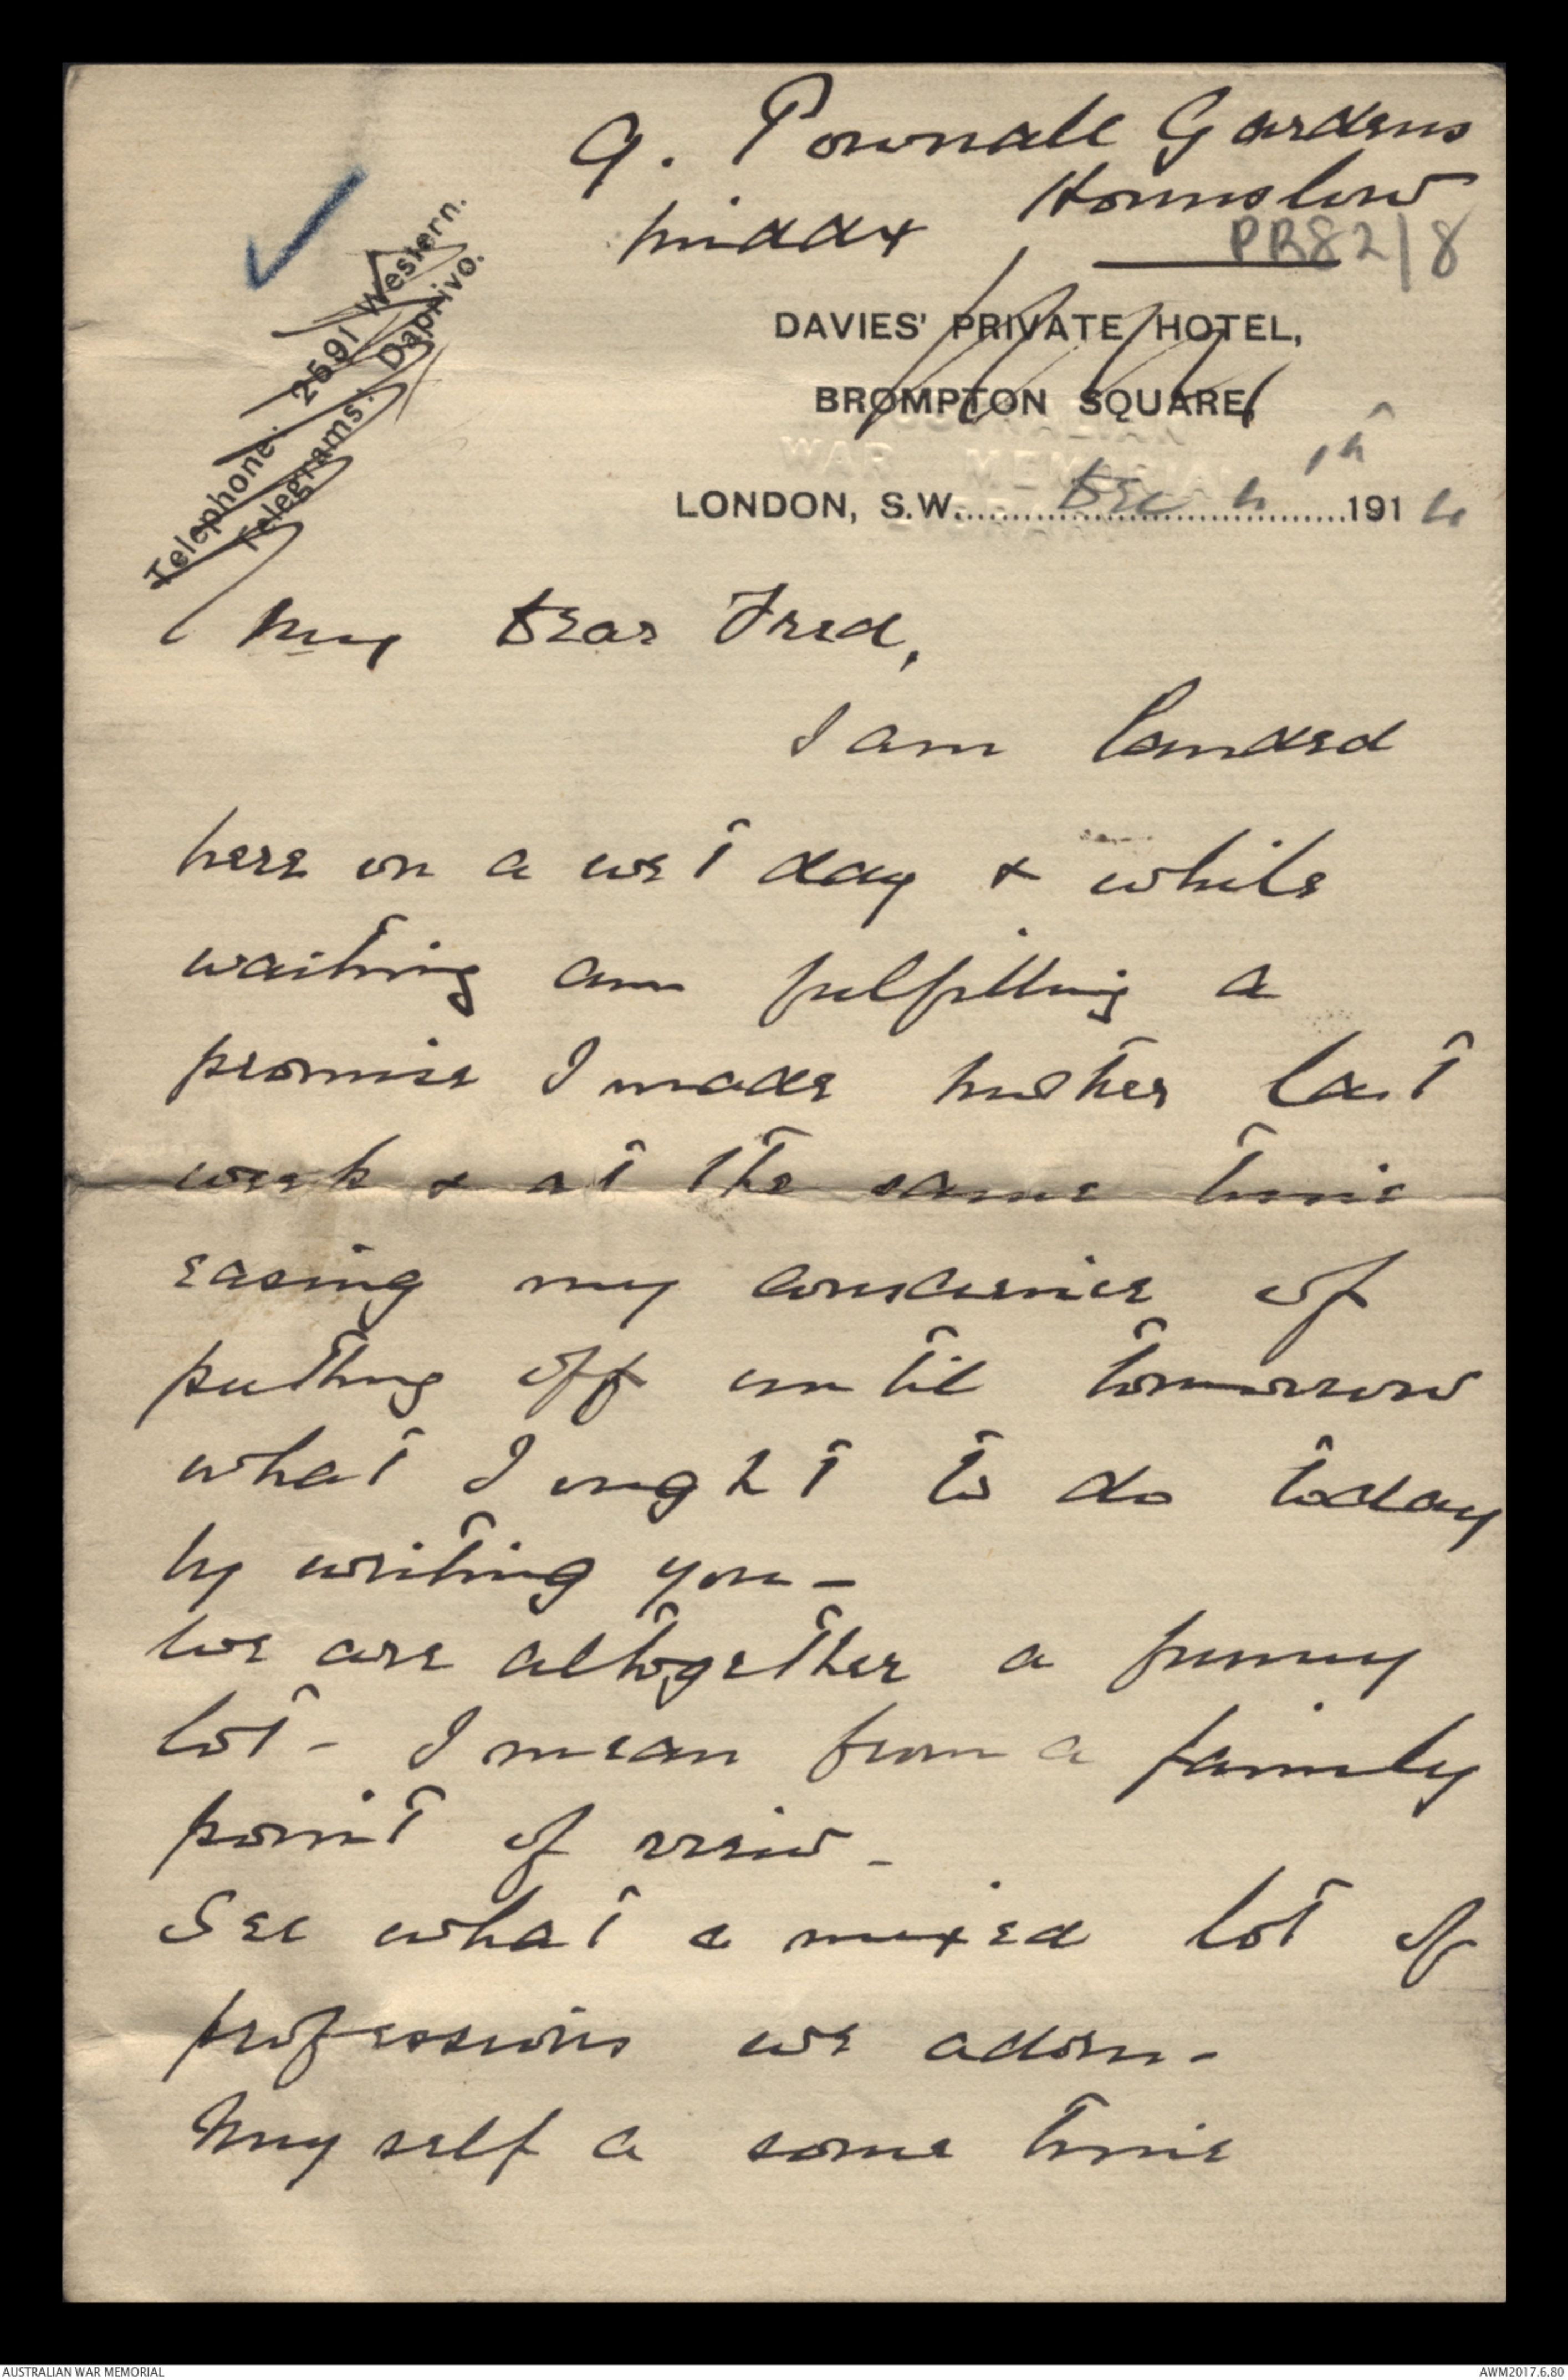 9. Pownall Gardens
Hounslow
Middx
PR82/8
Telephone: 2591 Western.
Telegrams: Daprivo.
DAVIES' PRIVATE HOTEL,
BROMPTON SQUARE,
LONDON, S.W. Dec 4th 1914
My Dear Fred,
I am landed
here on a wet day & while
waiting am fulfilling a
promise I made mother last
week & at the same time
easing my conscience of
putting off until tomorrow
what I ought to do today
by writing you -
We are altogether a funny
lot - I mean from a family
point of view -
See what a mixed lot of
professions we adorn -
Myself a some time
AUSTRALIAN WAR MEMORIAL
AWM2017.6.80